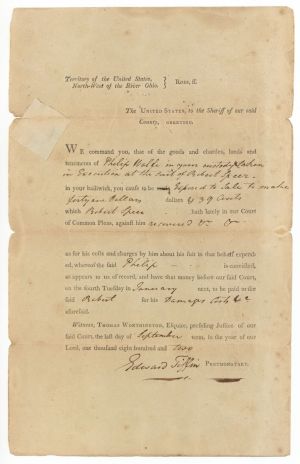 Territory of the United States,
North-West of the River Ohio. } Ross, ss.
The UNITED STATES, to the Sheriff of our said
County, GREETING.
WE command you, that of the goods and chattles, lands and
tenements of Philip Wolfe in your custody taken
in Execution at the suit of Robert Speer
in your bailiwick, you cause to be Exposed to Sale to make
dollars & 39 Cents
which Robert Speer hath lately in our Court
of Common Pleas, against him recovered &c
as for his costs and charges by him about his suit in that behalf expend-
ed, whereof the said Philip is convicted,
as appears to us of record, and have that money before our said Court,
on the fourth Tuesday in January next, to be paid to the
said Robert for his Damages Costs &c
aforesaid.
Witness, THOMAS WORTHINGTON, Esquire, presiding Justice of our
said Court, the last day of September term, in the year of our
Lord, one thousand eight hundred and two
Edward Tiffin PROTHONOTARY.